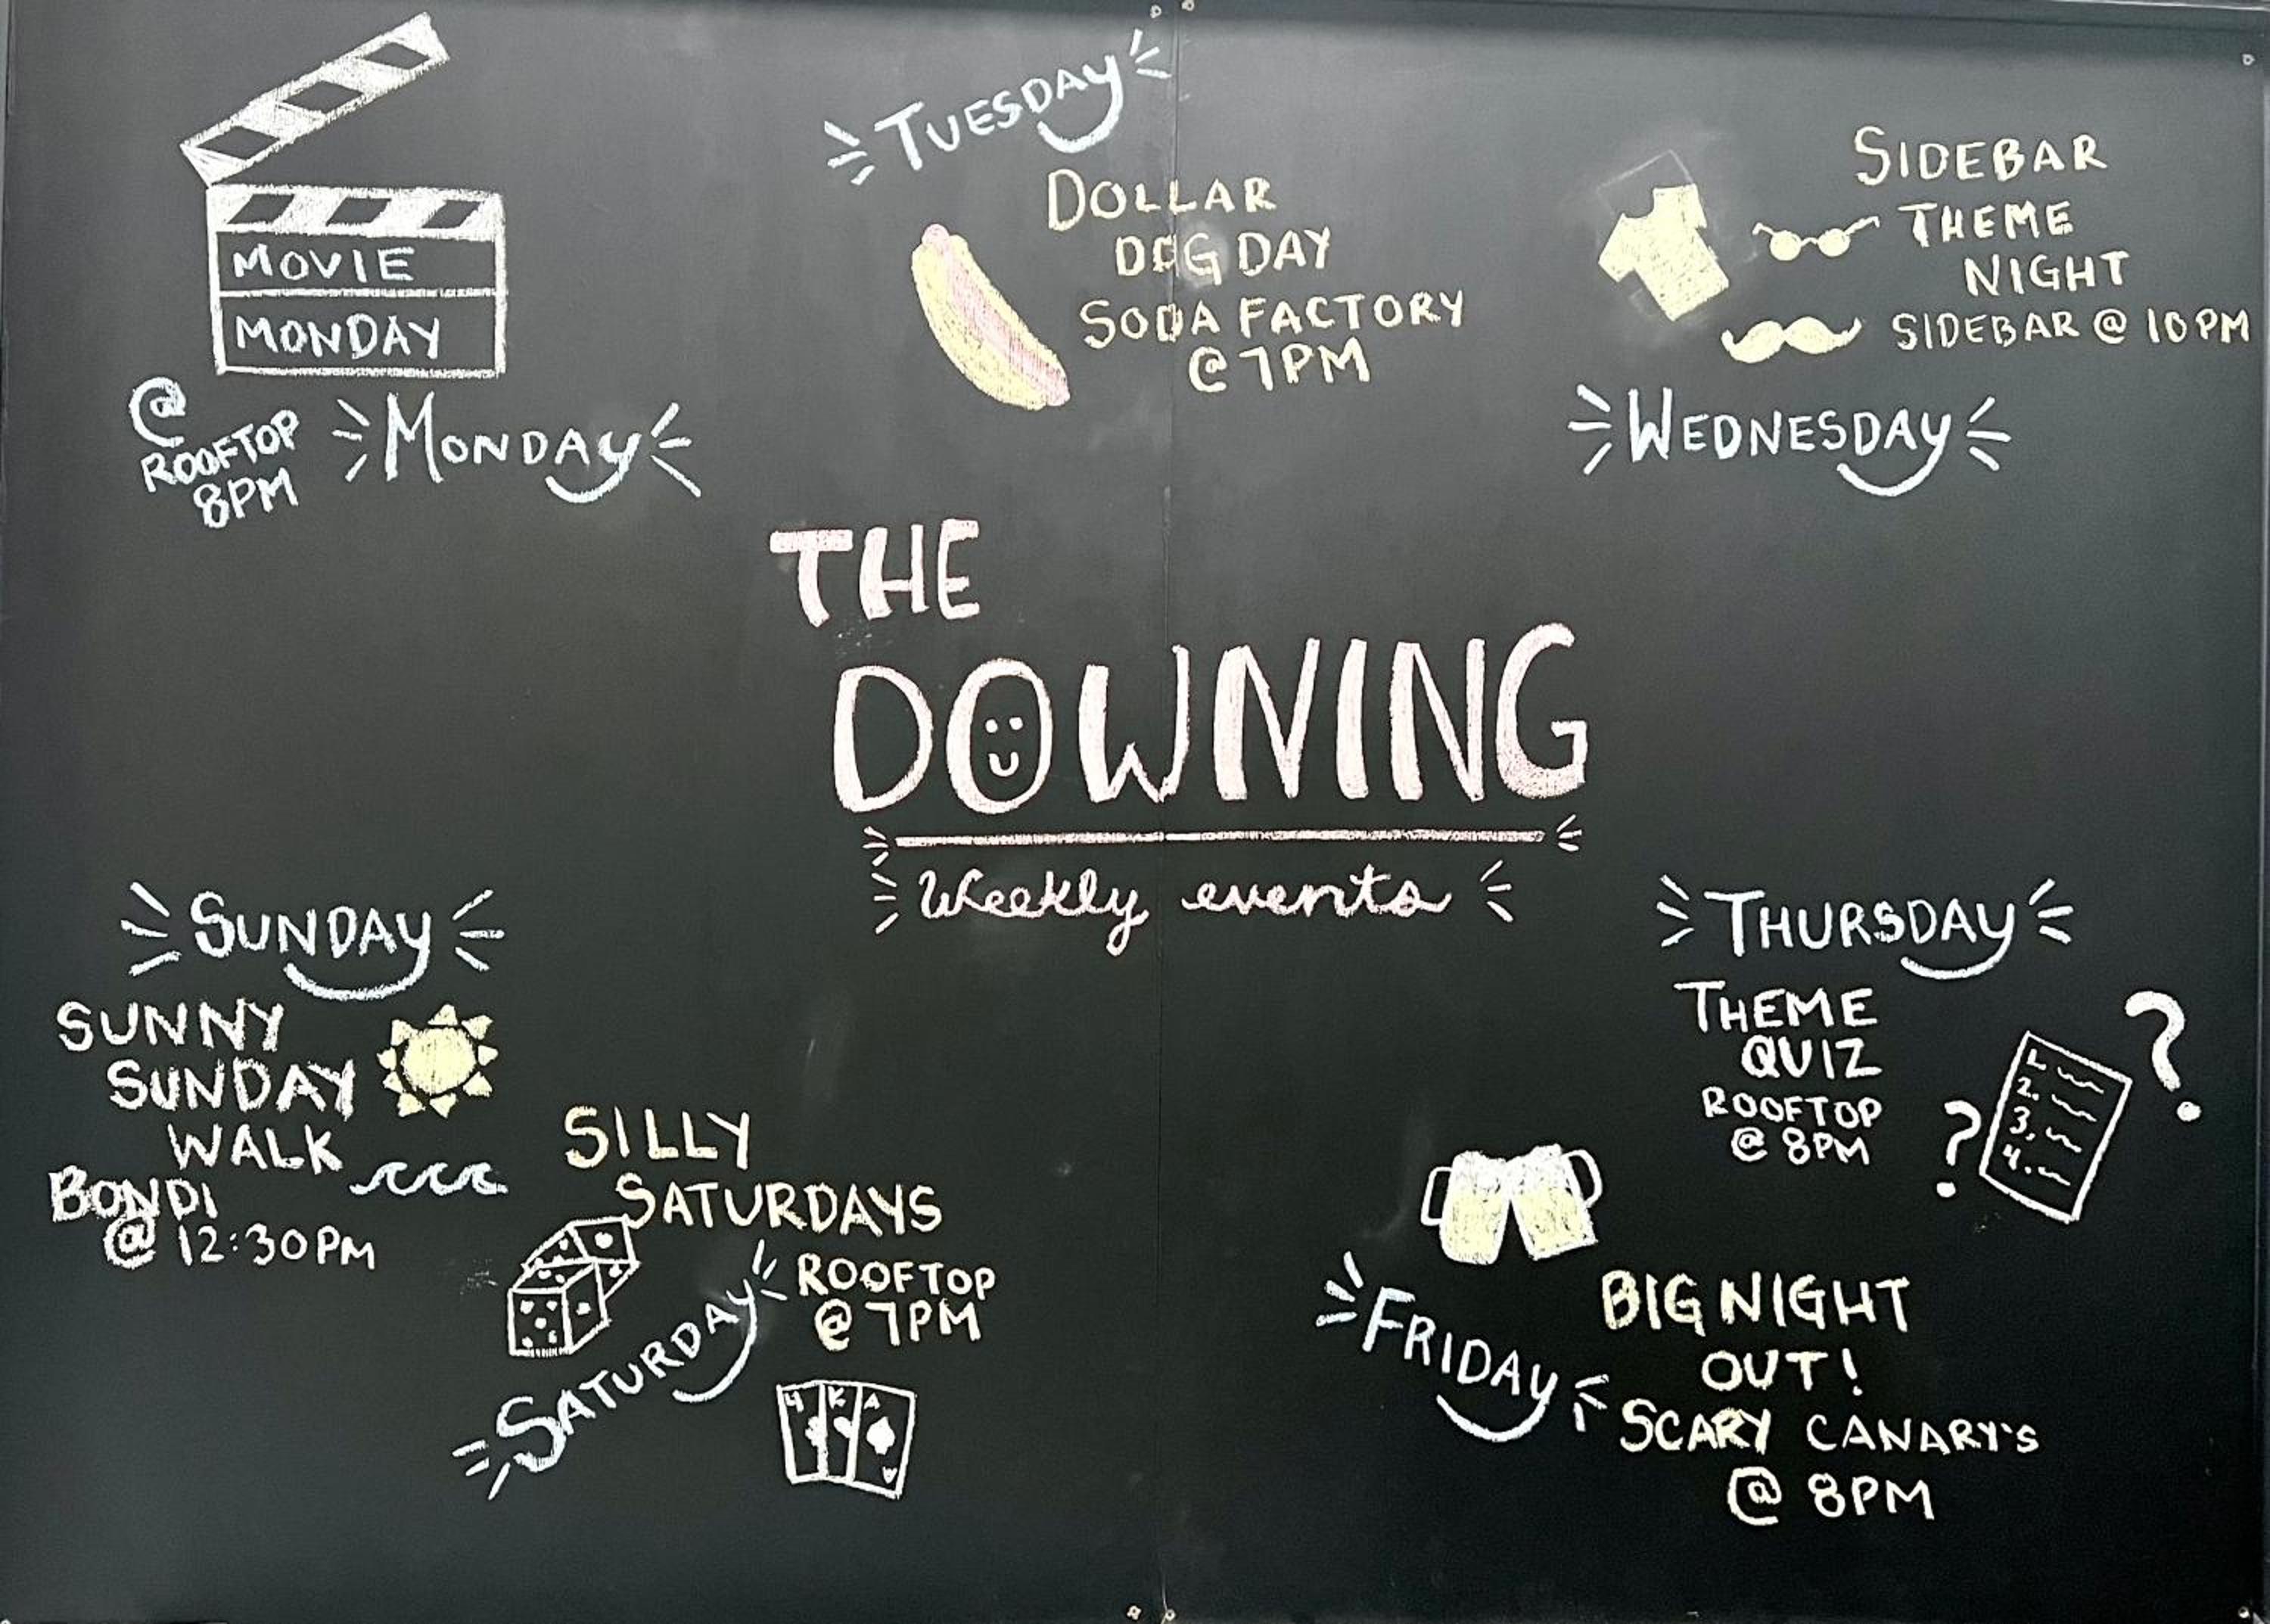 MOVIE
MONDAY
@
ROOFTOP
8PM
MONDAY
TUESDAY
DOLLAR
DOG DAY
SODA FACTORY
@ 7PM
SIDEBAR
THEME
NIGHT
SIDEBAR @ 10PM
WEDNESDAY
THE
DOWNING
Weekly events
THURSDAY
THEME
QUIZ
ROOFTOP
@ 8PM
1.
2.
3.
4.
?
?
FRIDAY
BIG NIGHT
OUT!
SCARY CANARY'S
@ 8PM
SILLY
SATURDAYS
ROOFTOP
@ 7PM
SATURDAY
4 K A
A
SUNDAY
SUNNY
SUNDAY
WALK
BONDI
@ 12:30PM